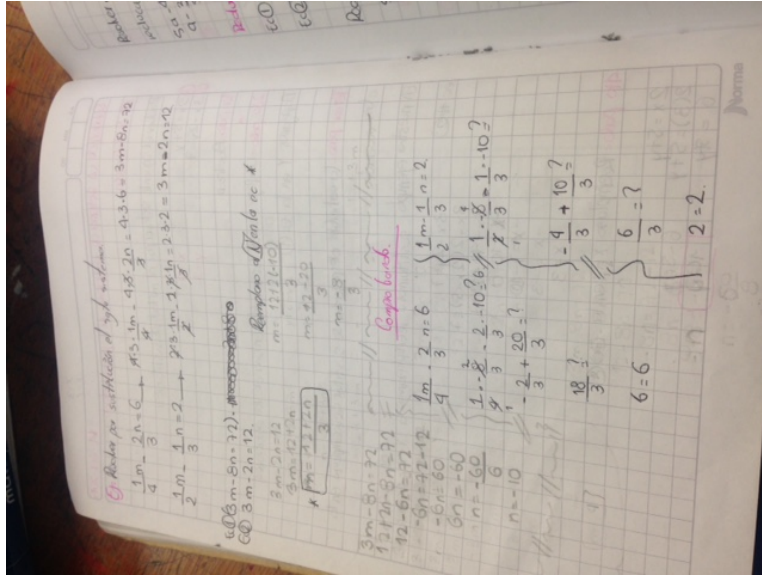 Resolver por sustitución el sgte sistema.
1/4 m - 2/3 n = 6 → 4·3·1m/4 - 4·3·2n/3 = 4·3·6 = 3m-8n=72
1/2 m - 1/3 n = 2 → 2·3·1m/2 - 2·3·1n/3 = 2·3·2 = 3m-2n=12
Ec① 3m-8n=72
Ec② 3m-2n=12.
3m-2n=12
3m=12+2n
* m=12+2n/3
3m-8n=72
12+2n-8n=72
12-6n=72
-6n=72-12
-6n=60
6n=-60
n=-60/6
n=-10
Remplazo n en la ec *
m=12+2(-10)/3
m=12-20/3
m=-8/3
Comprobando.
1/4 m - 2/3 n=6
1/4·-8/3 - 2/3·-10=?6
-2/3+20/3=?
18/3=?
6=6
1/2 m - 1/3 n=2
1/2·-8/3 - 1/3·-10=?
-4/3+10/3=?
6/3=?
2=2.
Norma